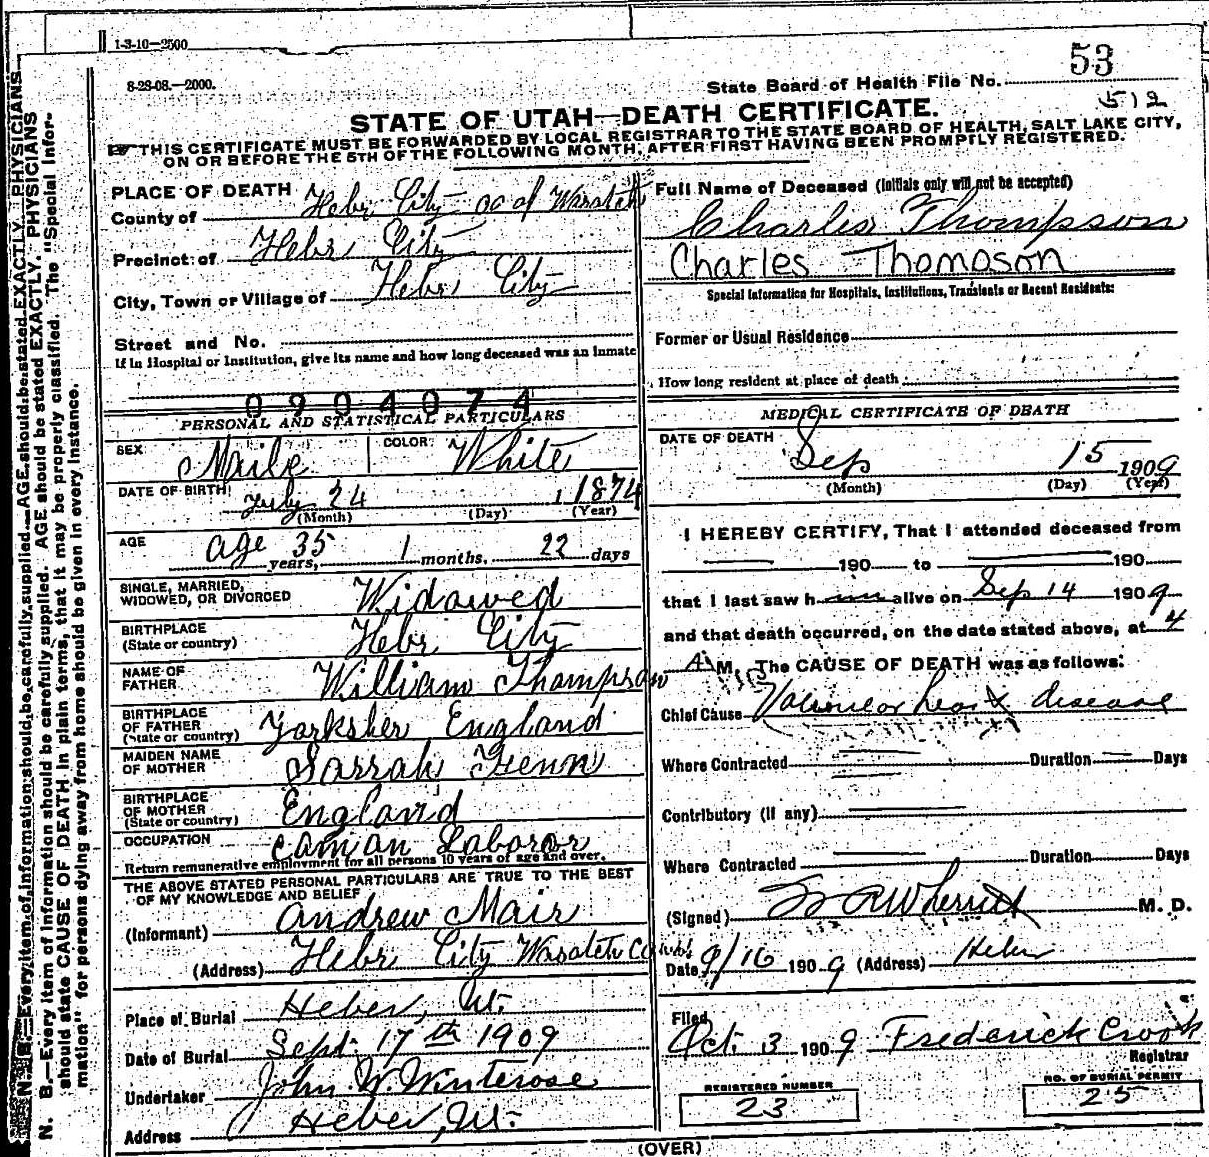 1-3-10—2500
8-28-08.—2000.
State Board of Health File No. 53
512
STATE OF UTAH—DEATH CERTIFICATE.
THIS CERTIFICATE MUST BE FORWARDED BY LOCAL REGISTRAR TO THE STATE BOARD OF HEALTH, SALT LAKE CITY,
ON OR BEFORE THE 5TH OF THE FOLLOWING MONTH, AFTER FIRST HAVING BEEN PROMPTLY REGISTERED.
N. B.—Every item of information should be carefully supplied. AGE should be stated EXACTLY. PHYSICIANS
should state CAUSE OF DEATH in plain terms, that it may be properly classified. The "Special Infor-
mation" for persons dying away from home should be given in every instance.
PLACE OF DEATH
County of Hebr City co of Wasatch
Precinct of Hebr City
City, Town or Village of Hebr City
Street and No.
If in Hospital or Institution, give its name and how long deceased was an inmate
0904074
PERSONAL AND STATISTICAL PARTICULARS
SEX Maile COLOR: White
DATE OF BIRTH July 24 , 1874
(Month) (Day) (Year)
AGE age 35 years, 1 months, 22 days
SINGLE, MARRIED,
WIDOWED, OR DIVORCED Widowed
BIRTHPLACE
(State or country) Hebr City
NAME OF
FATHER William Thompson
BIRTHPLACE
OF FATHER
(State or country) Yorksher England
MAIDEN NAME
OF MOTHER Sarrah Fenn
BIRTHPLACE
OF MOTHER
(State or country) England
OCCUPATION Laboror
Return remunerative employment for all persons 10 years of age and over.
THE ABOVE STATED PERSONAL PARTICULARS ARE TRUE TO THE BEST
OF MY KNOWLEDGE AND BELIEF
(Informant) Andrew Mair
(Address) Hebr City Wasatch Co
Place of Burial Heber, Ut.
Date of Burial Sept. 17th 1909
Undertaker John W. Winterose
Address Heber, Ut.
Full Name of Deceased (Initials only will not be accepted)
Charles Thompson
Charles Thompson
Special Information for Hospitals, Institutions, Transients or Recent Residents:
Former or Usual Residence
How long resident at place of death
MEDICAL CERTIFICATE OF DEATH
DATE OF DEATH Sep 15 1909
(Month) (Day) (Year)
I HEREBY CERTIFY, That I attended deceased from
190 to 190
that I last saw h im alive on Sep 14 1909
and that death occurred, on the date stated above, at 4
A M. The CAUSE OF DEATH was as follows:
Chief Cause Valvular heart disease
Where Contracted Duration Days
Contributory (if any)
Where Contracted Duration Days
(Signed) Wherritt M. D.
Date 9/16 1909 (Address) Heber
Filed
Oct. 3 1909 Frederick Crook
Registrar
REGISTERED NUMBER
23
NO. OF BURIAL PERMIT
25
(OVER)